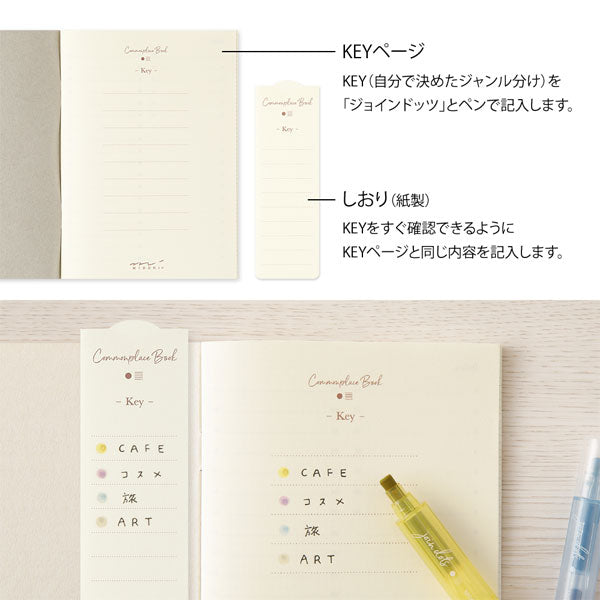 Commonplace Book
- Key -
MIDORI
Commonplace Book
- Key -
KEYページ
KEY（自分で決めたジャンル分け）を
「ジョインドッツ」とペンで記入します。
しおり（紙製）
KEYをすぐ確認できるように
KEYページと同じ内容を記入します。
Commonplace Book
- Key -
CAFE
コスメ
旅
ART
Commonplace Book
- Key -
CAFE
コスメ
旅
ART
join dots